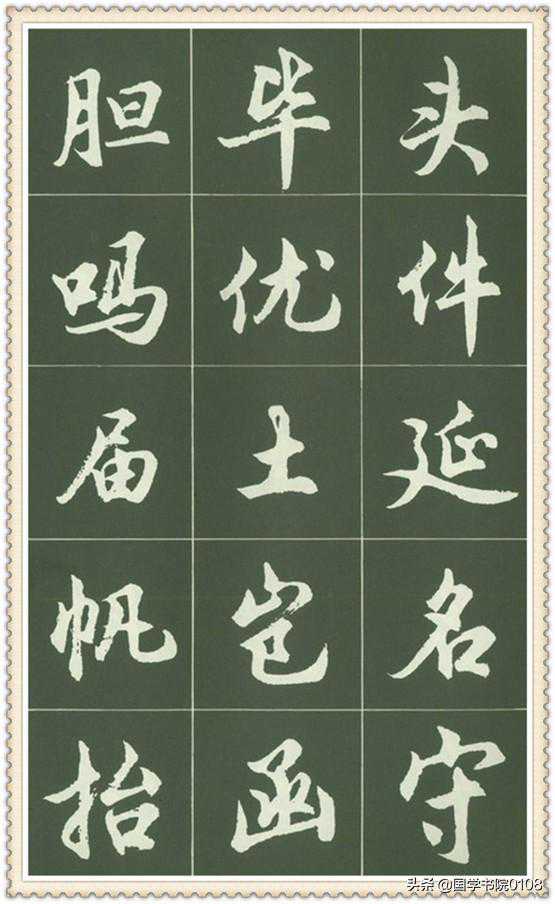 胆毕头
吗优件
届土延
帆岂名
抬函守
头条 @国学书院0108